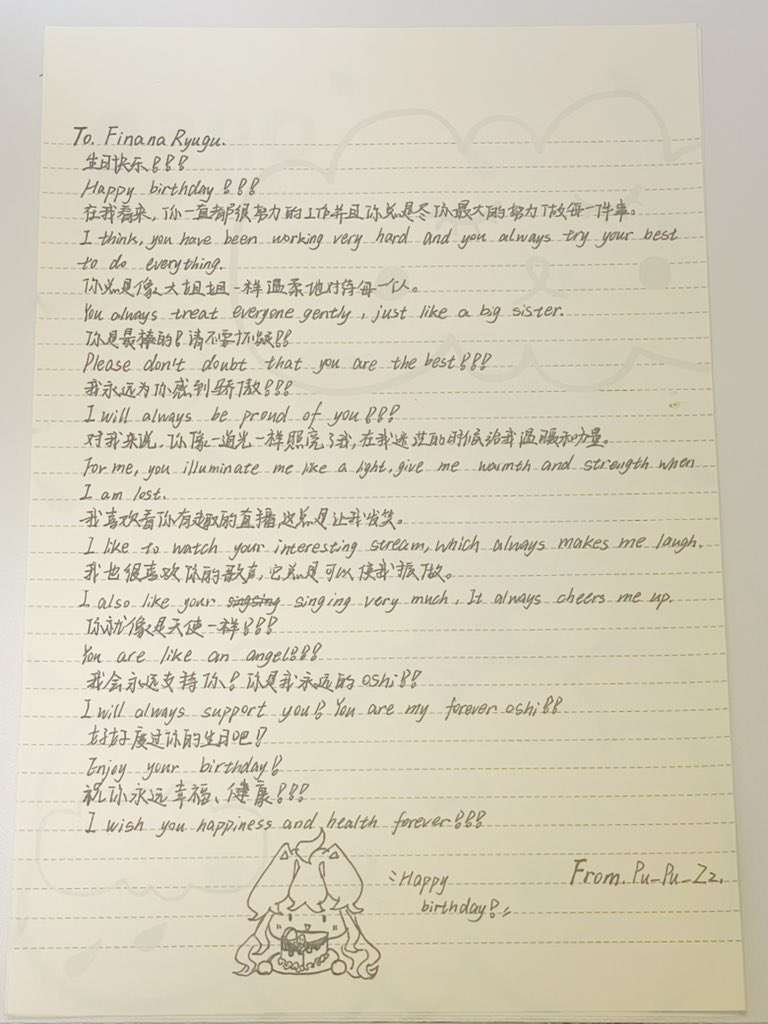 To. Finana Ryugu.
生日快乐!!!
Happy birthday!!!
在我看来，你一直都很努力的工作并且你总是尽你最大的努力做每一件事。
I think, you have been working very hard and you always try your best
to do everything.
你总是像大姐姐一样温柔地对待每一个人。
You always treat everyone gently, just like a big sister.
你是最棒的!请不要怀疑!!
Please don't doubt that you are the best!!!
我永远为你感到骄傲!!!
I will always be proud of you!!!
对我来说，你像一道光一样照亮了我，在我迷茫的时候给我温暖和力量。
For me, you illuminate me like a light, give me warmth and strength when
I am lost.
我喜欢看你有趣的直播，这总是让我发笑。
I like to watch your interesting stream, which always makes me laugh.
我也很喜欢你的歌声，它总是可以使我振作。
I also like your singing very much, It always cheers me up.
你就像是天使一样!!!
You are like an angel!!!
我会永远支持你!你是我永远的oshi!!
I will always support you! You are my forever oshi!!
好好度过你的生日吧!
Enjoy your birthday!
祝你永远幸福、健康!!!
I wish you happiness and health forever!!!
Happy
birthday!
From. Pu-Pu-Zz.